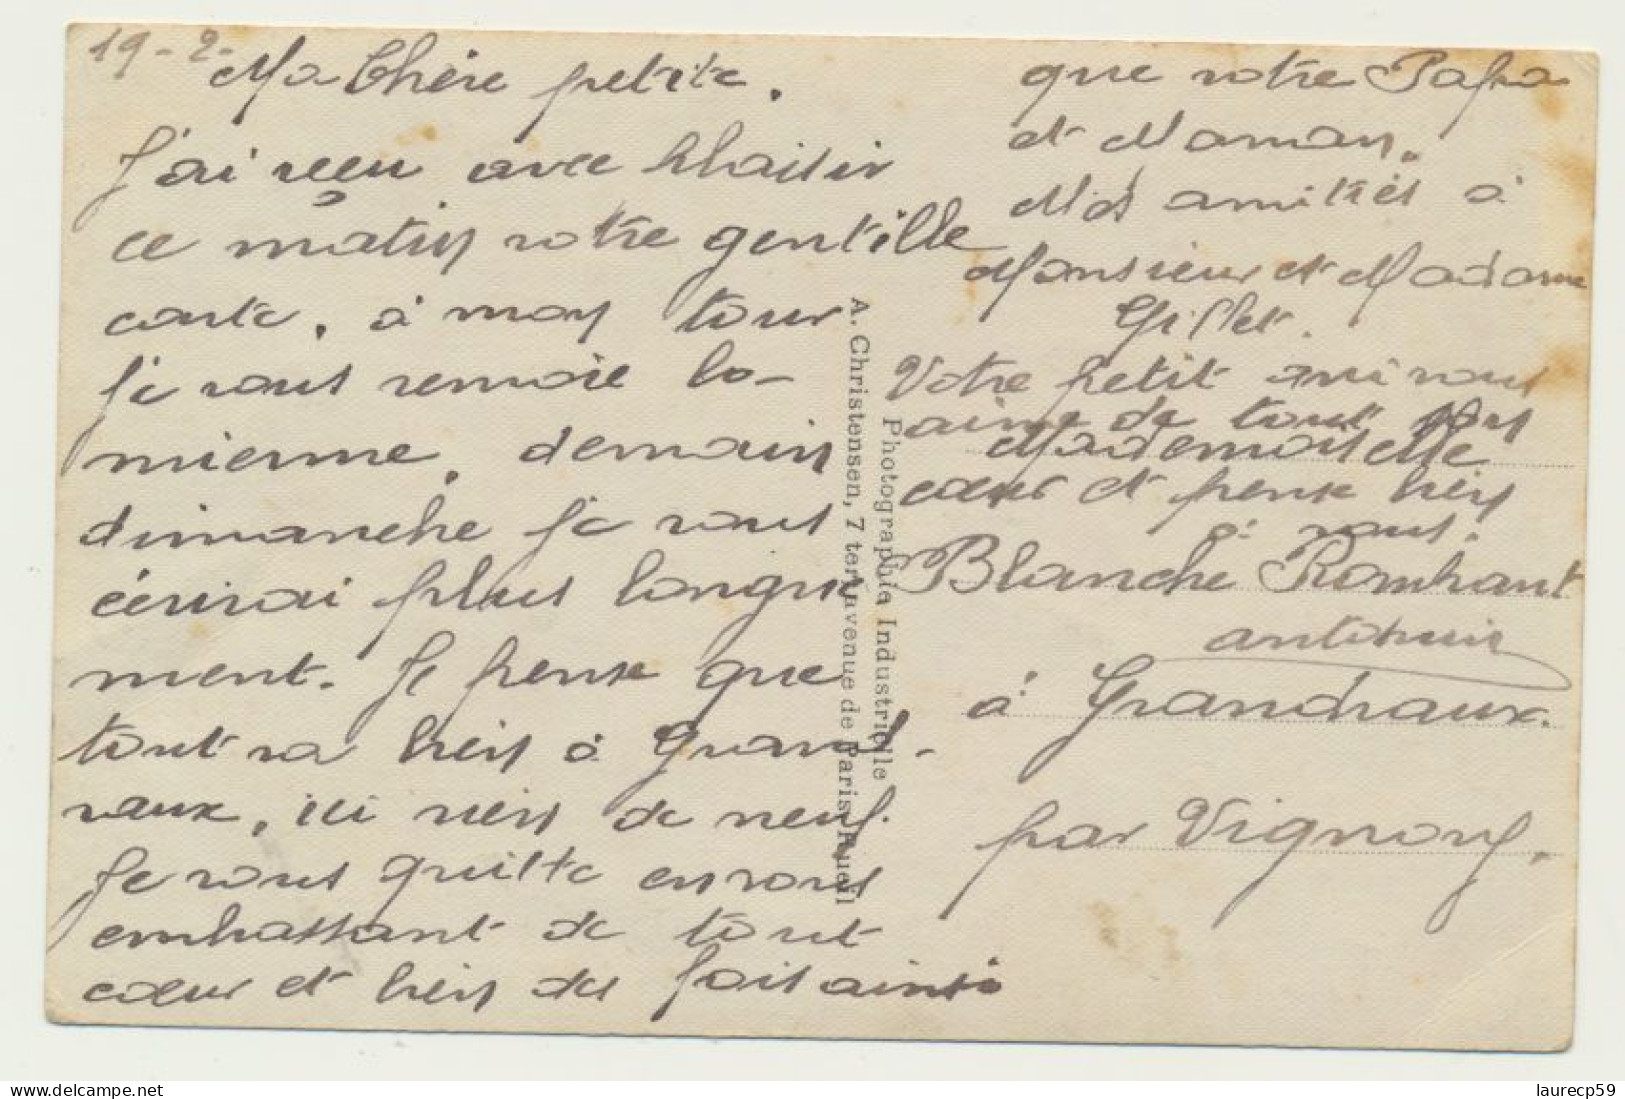 19-2-
Ma Chère petite.
J'ai reçu avec plaisir
ce matin votre gentille
carte, à mon tour
je vous renvoie la
mienne, demain
dimanche je vous
écrirai plus longue
ment. Je pense que
tout va bien à Grand-
vaux, ici rien de neuf.
Je vous quitte en vous
embrassant de tout
cœur et bien des fois ainsi
que votre Papa
et Maman.
Mes amitiés à
Monsieur et Madame
Gillet.
Votre petit ami vous
aime de tout son
cœur et pense bien
à vous.
Mademoiselle
Blanche Romhant
à Grandvaux.
par Vignory.
Photographie Industrielle
A. Christensen, 7 ter, avenue de Paris, Rueil
laurecp59
www.delcampe.net